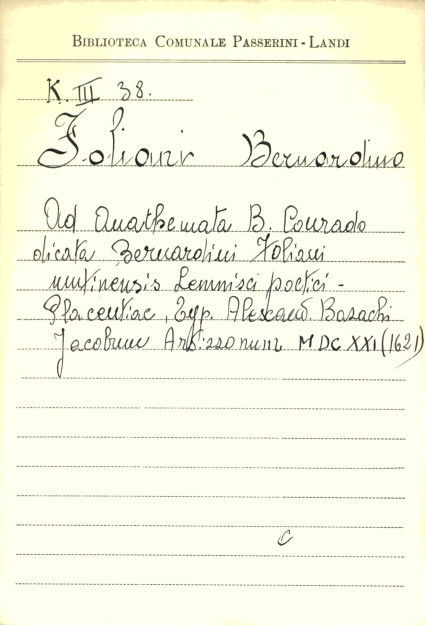 BIBLIOTECA COMUNALE PASSERINI - LANDI
K. III 38.
Foliani Bernardino
Ad Anathemata B. Conrado
dicata Bernardini Foliani
mutinensis Lemnisci poetici -
Placentiae, Typ. Alexand. Bazachi
Jacobum Ardizzonum MDCXXI (1621)
C